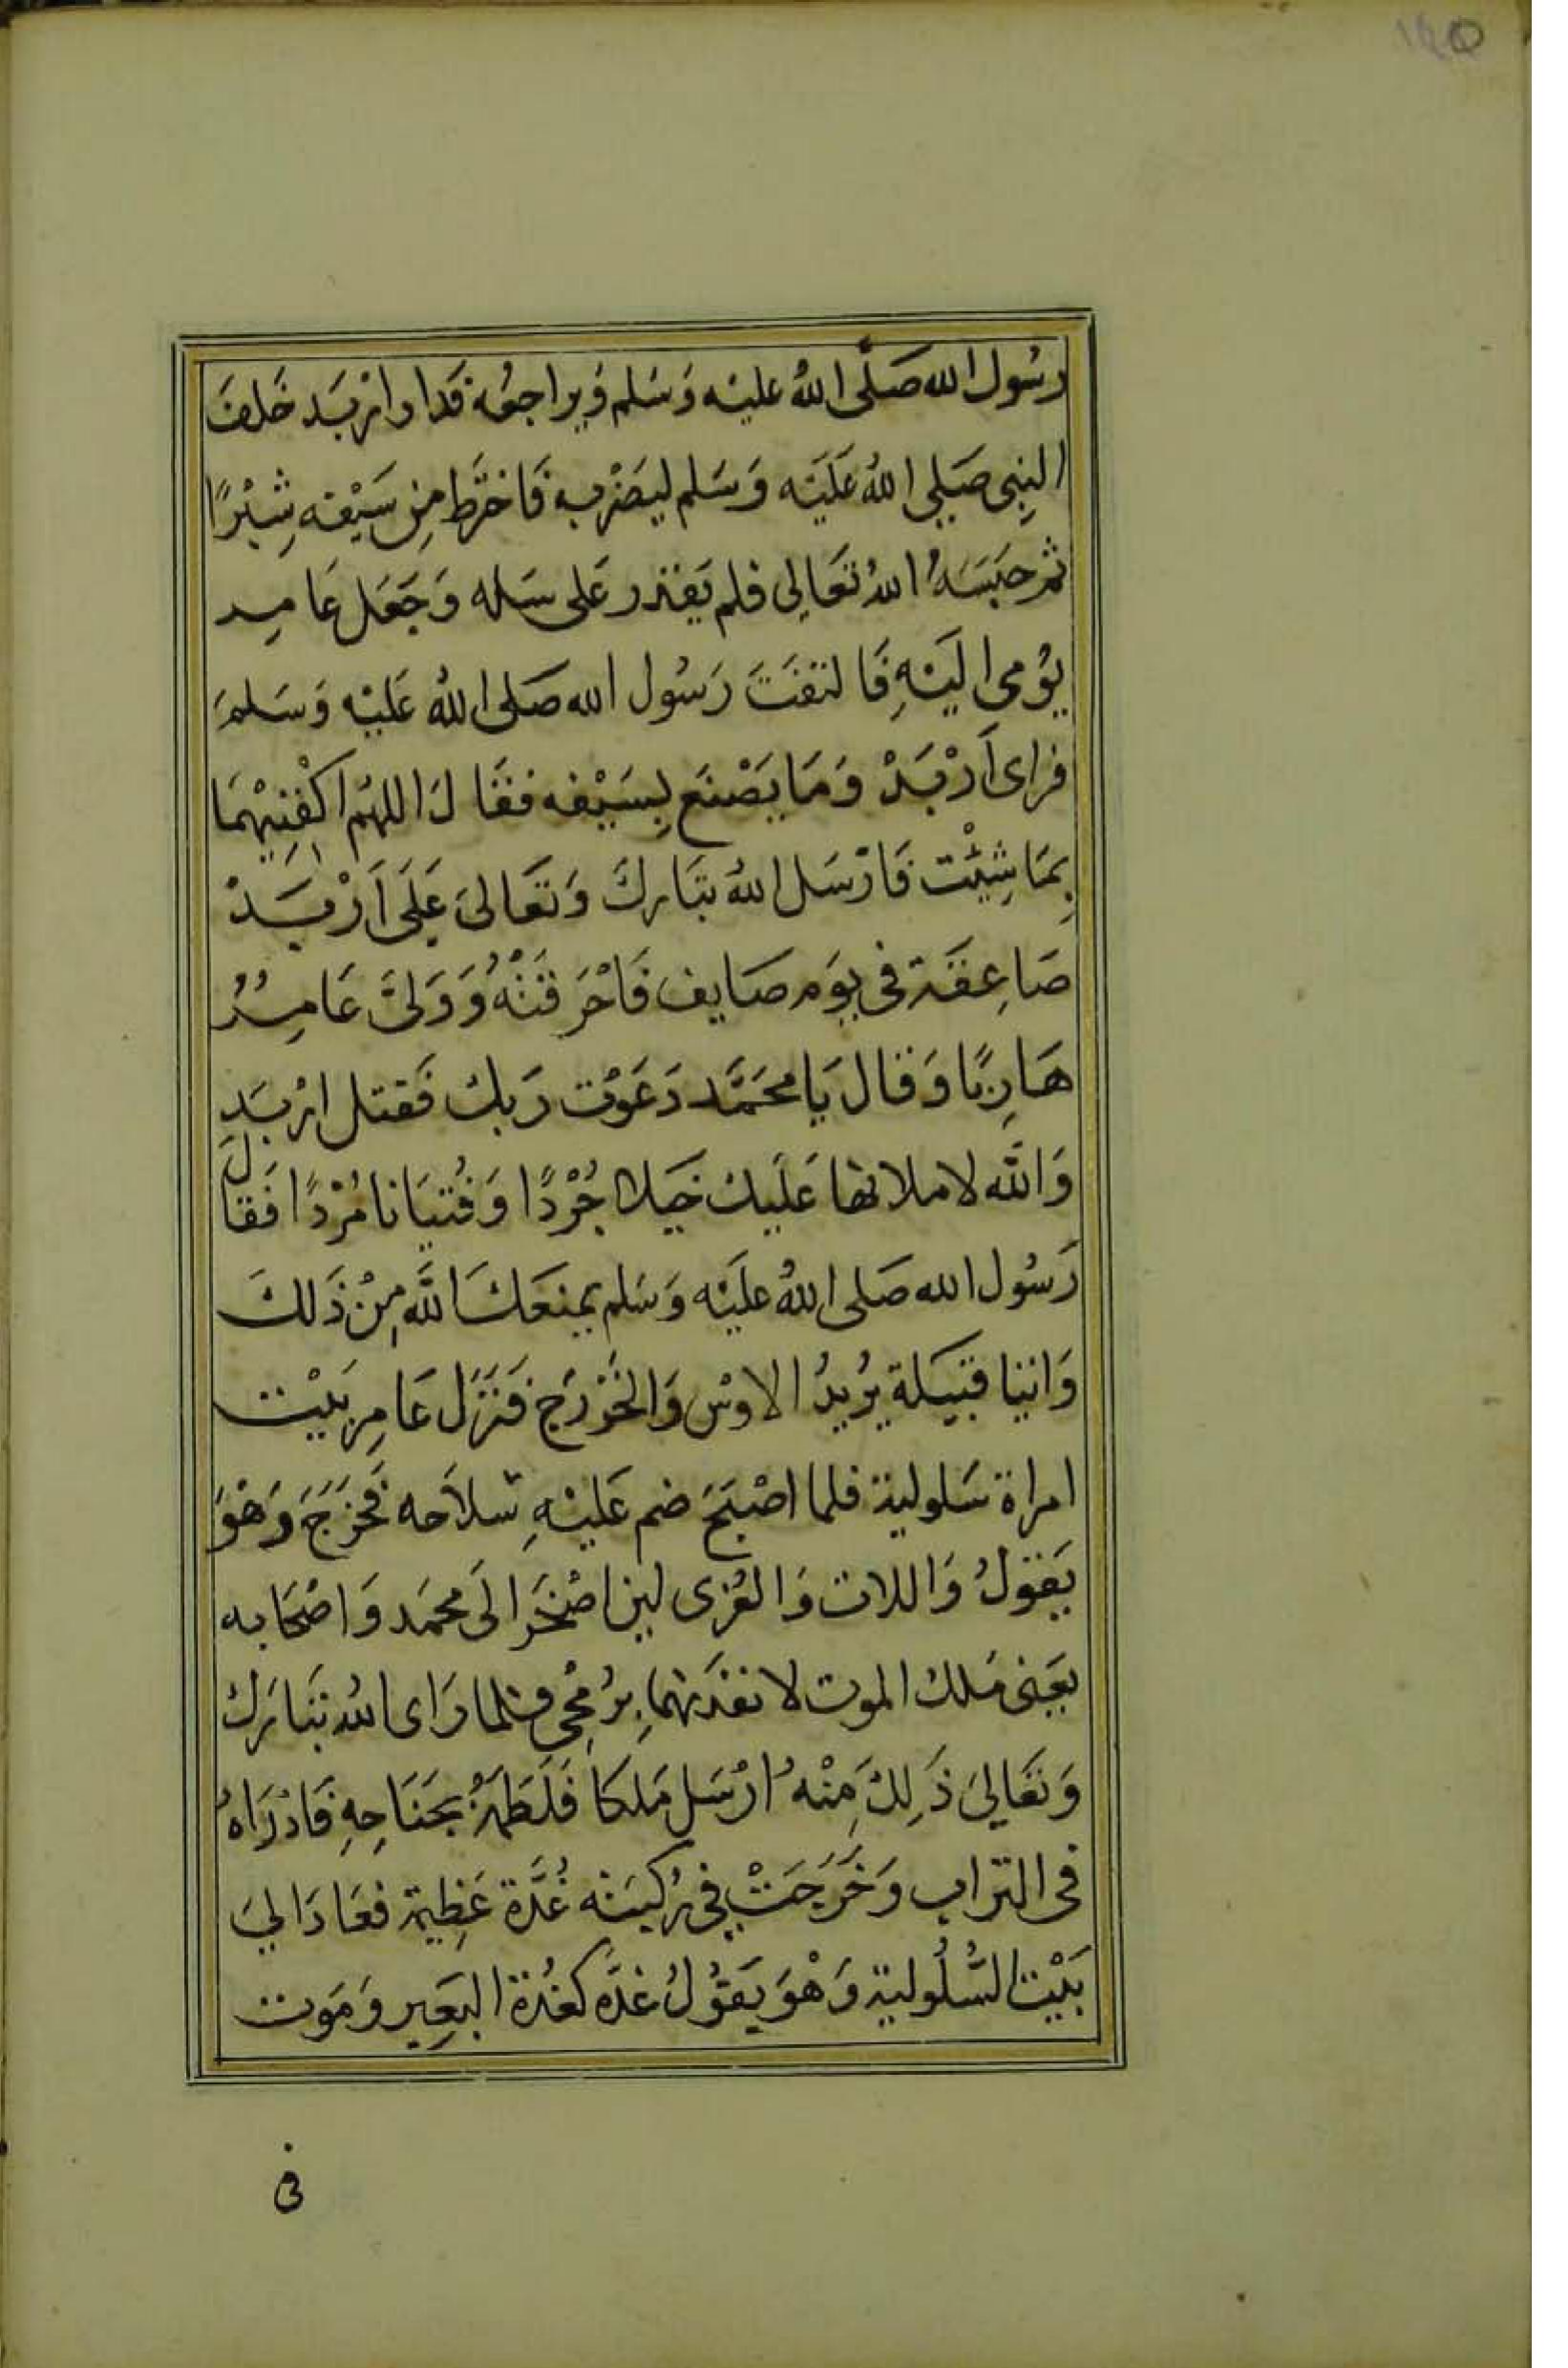 رسُول الله صَلَّى اللهُ عليْه وَسَلم وَيراجعُه فَدار ارْبَد خَلفَ
النبِى صَلى اللهُ عَلَيْه وَسَلم ليَضْربه فَاخترَط مِن سَيْفه شِبْرًا
ثم حَبَسَهُ اللهُ تعَالى فلم يَقدر عَلى سَله وَجَعَل عَامِر
يُومى اليْهِ فَالتفَتَ رَسُول الله صَلى اللهُ عَليْه وَسَلمَ
فراى اَرْبَدْ وَمَا يَصْنَع بِسَيْفه فقَال اللهُم اكْفِنِيْهمَا
بِمَا شِئْت فَارْسَل اللهُ تبَارك وَتعَالىَ عَلَى اَرْبَدْ
صَاعِقَة فى يوَم صَايف فَاحْرَقتْهُ وَوَلىَّ عَامِرُ
هَارِبًا وَقال يَا محَمَّد دَعَوْت رَبك فَقتل ارْبَد
وَالله لاملانها عَلَيك خيلا جُرْدًا وَفُتيَانا مُرْدًا فَقالَ
رَسُول الله صَلى اللهُ عليَه وَسَلم يمنَعَك اللَّه مِنْ ذَلكَ
وَابنا قبَيلة يرُيدُ الاوْس وَالخَزْرَج فَنَزَل عَامِر بَيْت
امراة سَلولية فلما اصْبَحَ ضم عَليْهِ سلاَحه فخَرَجَ وَهْوَ
يَقولُ وَاللات وَالعُزى لين اصْحَرَ الَى محمَد وَاصْحَابه
يعَنى مَلك الموت لانفذنهما برُمْحِى فلما رَاى اللهُ تبَارَك
وَتعَالىَ ذَلِك مِنْهُ ارْسَل مَلكاً فَلَطمَهُ بجَنَاحِهِ فَاذْرَاهُ
فى التراب وَخَرَجَتْ فى رُكبَته غُدَّة عَظِيمة فعَادَ الىَ
بَيْت السُّلُولية وَهْوَ يَقُولُ غدَّة كغُدة البَعِير وَمَوت
فى